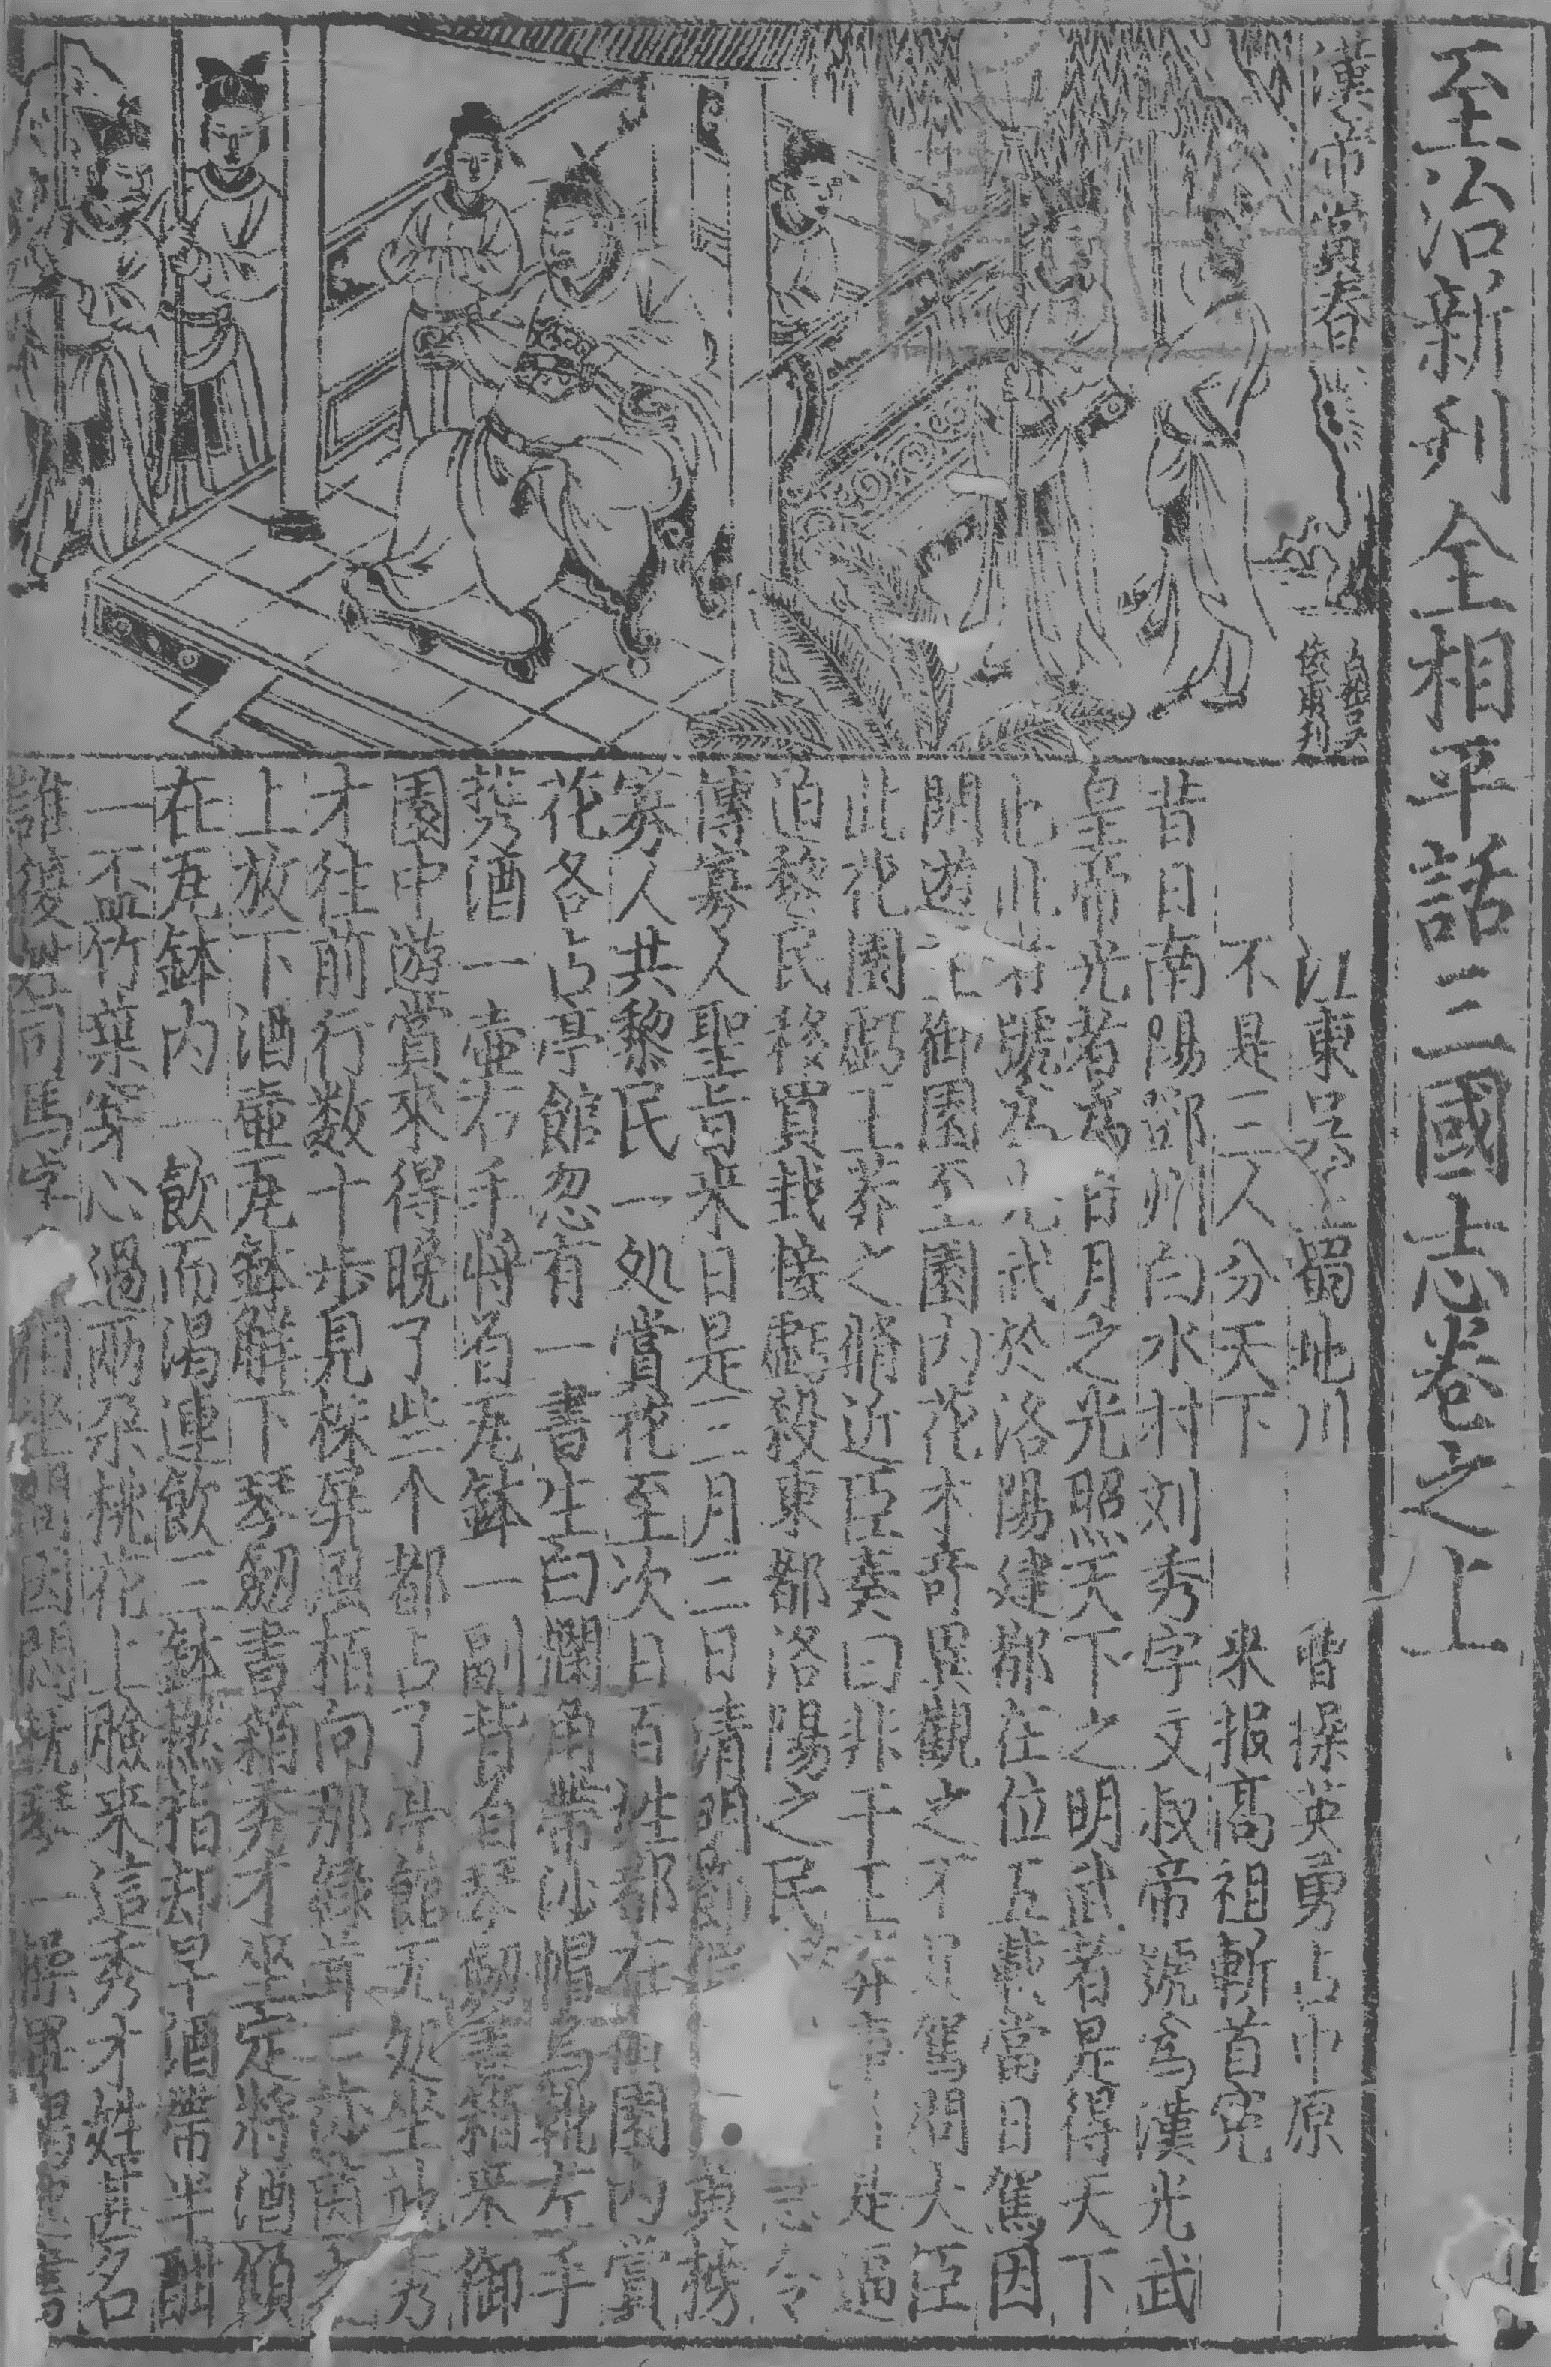 至治新刊全相平話三國志卷之上
漢帝賞春
江東吳蜀地川 曹操英勇占中原
不是三人分天下 来报高祖斬首冤
昔日南陽鄧州白水村刘秀字文叔帝號為漢光武
皇帝光者為日月之光照天下之明武者是得天下
也此者號為光武於洛陽建都在位五載當日駕因
閑遊至御園至園内花木奇異觀之不足駕問大臣
此花園虧王莽之修近臣奏曰非干王莽事是逼
迫黎民移買栽接虧殺東都洛陽之民 令
傳寡人聖旨来日是三月三日清明節 黄榜
寡人共黎民一処賞花至次日百姓都在御園内賞
花各占亭館忽有一書生白襴角帶沙帽烏靴左手
携酒一壷右手将着瓦鉢一副背着琴劒書箱来御
園中遊賞來得晚了些个都占了亭館无処坐地秀
才往前行数十步見株屏風柏向那綠茸茸莎茵之
上放下酒壷瓦鉢解下琴劒書箱秀才坐定将酒傾
在瓦鉢内一飲而渴連飲三鉢捻指却早酒帶半酣
一盃竹葉穿心過兩朶桃花上臉来這秀才姓甚名
誰復姓司馬字 相坐間因悶抚琴一操畢揭起書